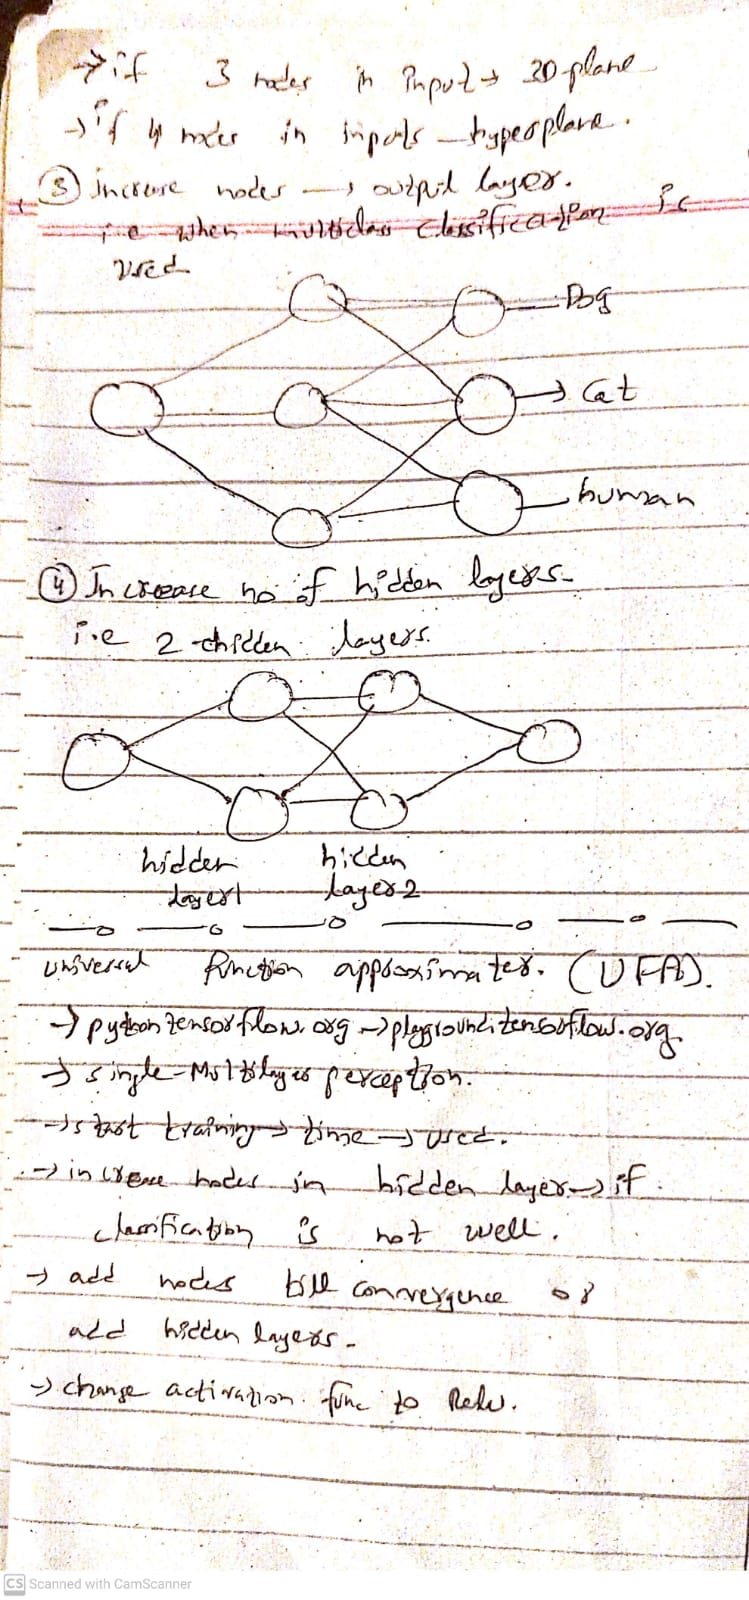 → if 3 nodes in input → 3D plane
→ if 4 nodes in inputs – hyperplane.
③ increase nodes → output layer.
i.e when multiclass classification is
used
Dog
→ Cat
human
④ Increase no of hidden layers.
i.e 2 hidden layers.
hidden layer 1
hidden layer 2
universal function approximater. (UFA).
→ python tensorflow.org → playground.tensorflow.org
→ single-Multilayer perception.
→ start training → time → used.
→ increase nodes in hidden layer → if
classification is not well.
→ add nodes till convergence or
add hidden layers.
→ change activation func to Relu.
CS Scanned with CamScanner